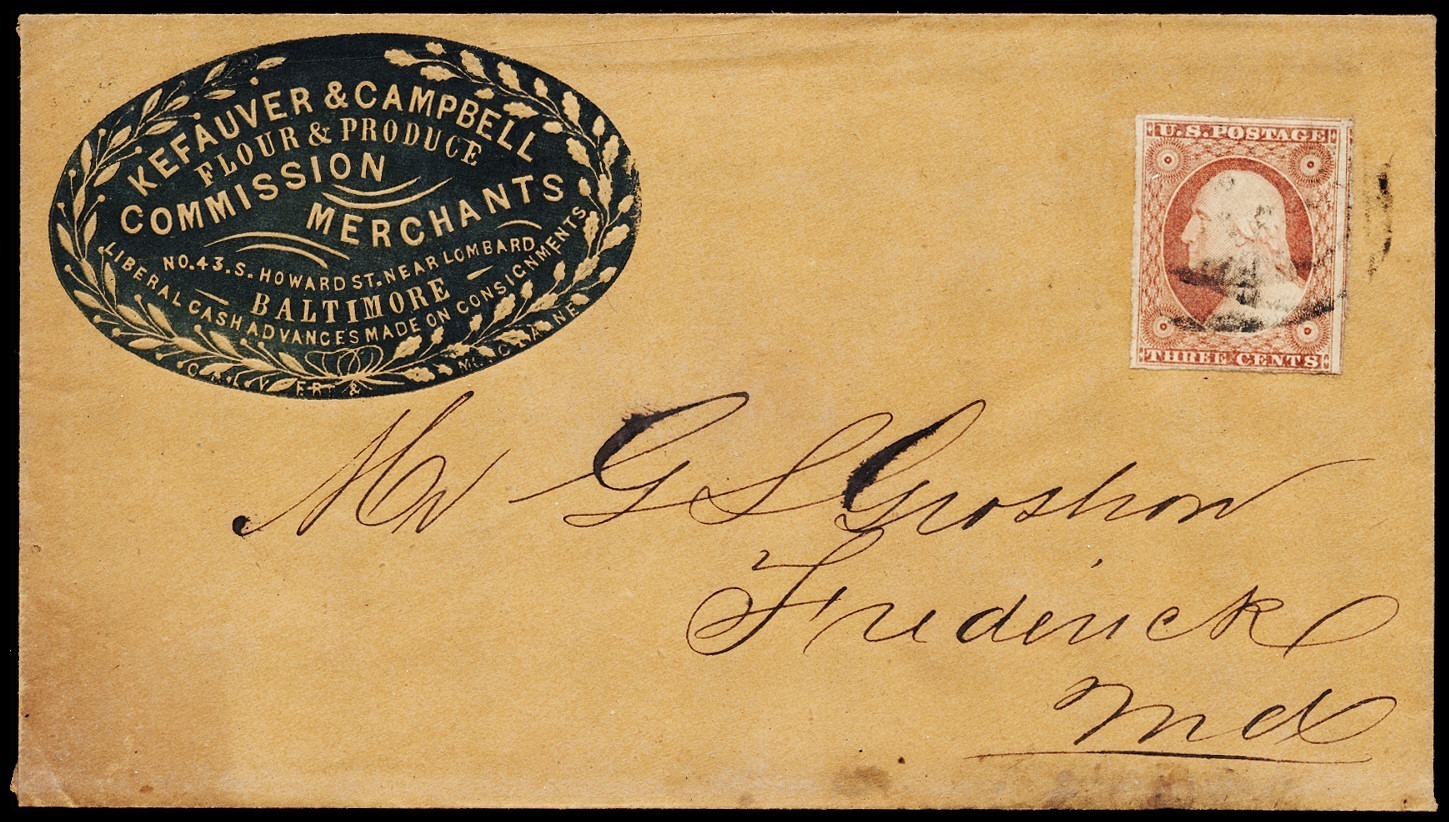 KEFAUVER & CAMPBELL
FLOUR & PRODUCE
COMMISSION
MERCHANTS
NO. 43. S. HOWARD ST. NEAR LOMBARD
BALTIMORE
LIBERAL CASH ADVANCES MADE ON CONSIGNMENTS
U.S. POSTAGE
THREE CENTS
Mr G S Groshon
Frederick
Md